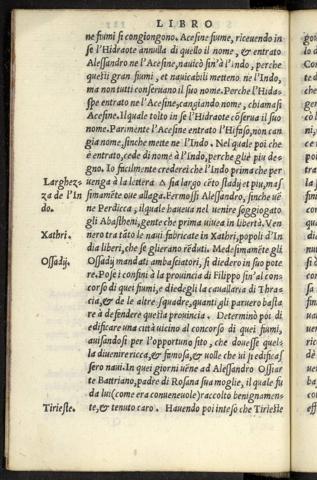 LIBRO
ne fiumi si congiongono. Acesine fiume, riceuendo in
se l'Hidraote annulla di quello il nome, & entrato
Alessandro ne l'Acesine, nauicò sin'à l'Indo, perche
questi gran fiumi, et nauicabili metteno ne l'Indo,
ma non tutti conseruano il suo nome. Perche l'Hida-
spe entrato ne l'Acesine, cangiando nome, chiamasi
Acesine. Il quale tolto in se l'Hidraote cõserua il suo
nome. Parimente l'Acesine entrato l'Hifaso, non can
gia nome, sinche mette ne l'Indo. Nel quale poi che
è entrato, cede di nome à l'Indo, perche gliè piu de-
gno. Io facilmente crederei che l'Indo prima che per
Larghez-
za de l'In
do.
uenga à la lettera Δ sia largo cẽto stadij et piu, mas
simamẽte oue allaga. Fermossi Alessandro, sinche uẽ
ne Perdicca, il quale haueua nel uenire soggiogato
gli Abastheni, gente che prima uiuea in libertà. Ven
Xathri.
nero tra tãto le naui fabricate in Xathri, popoli d'In
dia liberi, che se glierano rẽduti. Medesimamẽte gli
Ossadij.
Ossadij mandati ambasciatori, si diedero in suo pote
re. Pose i confini à la prouincia di Filippo sin'al con-
corso di quei fiumi, e diedegli la cauallaria di Thra-
cia, & de le altre squadre, quanti gli paruero basta
re à defendere questa prouincia. Determinò poi di
edificare una città uicino al concorso di quei fiumi,
auisandosi per l'opportuno sito, che douesse quel-
la diuenire ricca, & famosa, & uolle che ui si edificas
sero naui. In quei giorni uẽne ad Alessandro Ossiar
te Battriano, padre di Rosana sua moglie, il quale fu
da lui (come era conueneuole) raccolto benignamen-
Tirieste.
te, & tenuto caro. Hauendo poi inteso che Tirieste